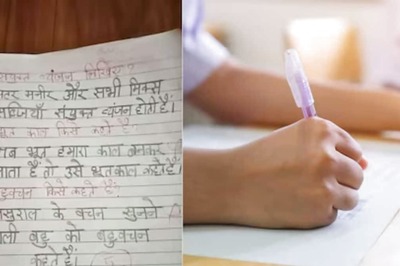 व्यंजन लिखिए?
टर पनीर और सभी मिक्स
ब्जियाँ संयुक्त व्यंजन होते हैं।
भूत काल किसे कहते हैं?
जब भूत हमारा काल बनकर
आता है तो उसे भूतकाल कहते हैं।
हुवचन किसे कहते हैं?
ससुराल के वचन सुनने
ली बहु को बहुवचन
कहते हैं।